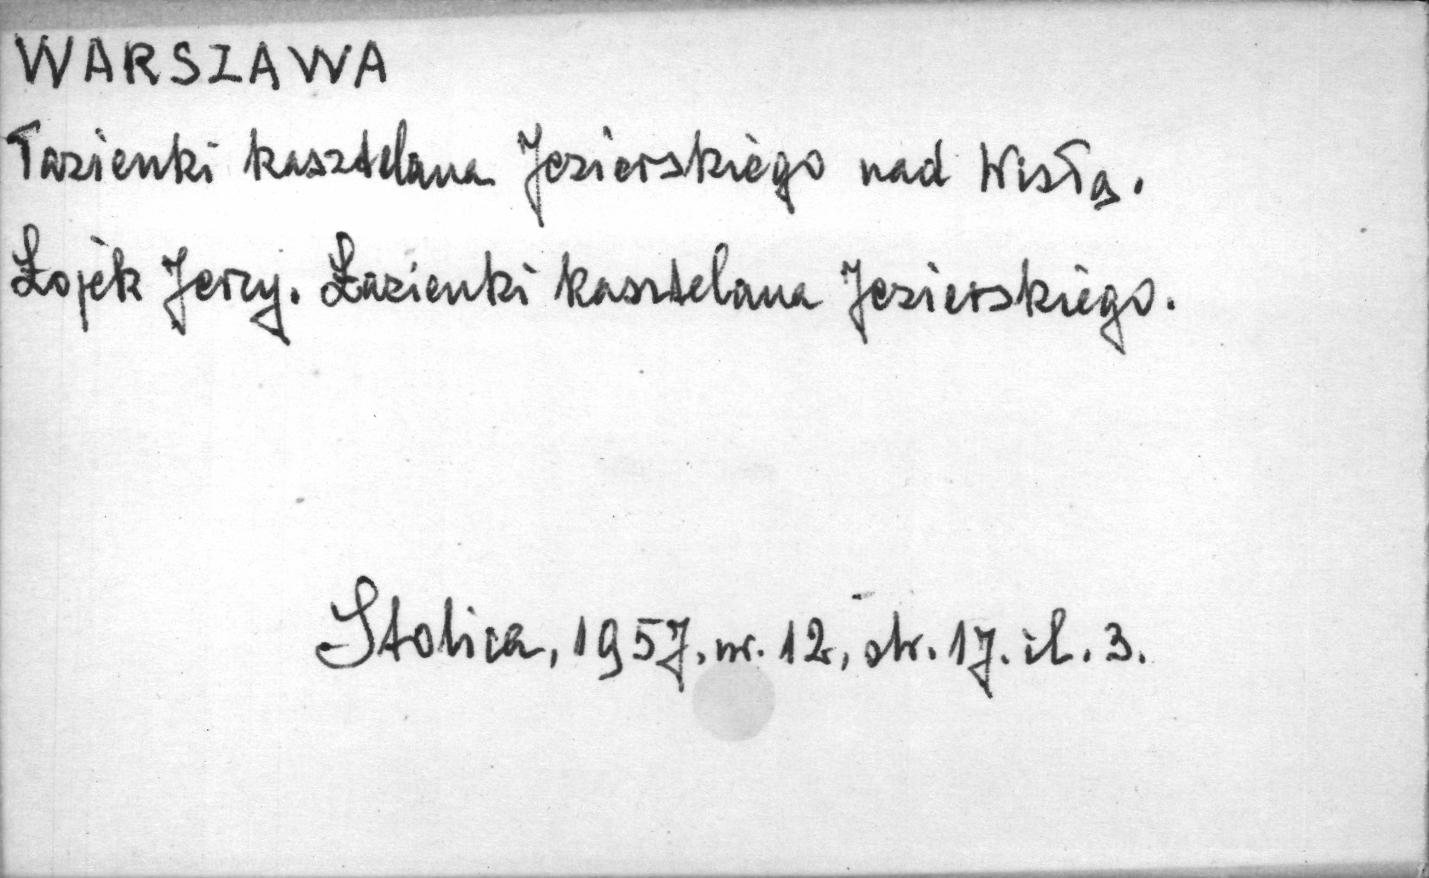 WARSZAWA
Łazienki kasztelana Jezierskiego nad Wisłą.
Łojek Jerzy. Łazienki kasztelana Jezierskiego.
Stolica, 1957. nr. 12, str. 17. il. 3.